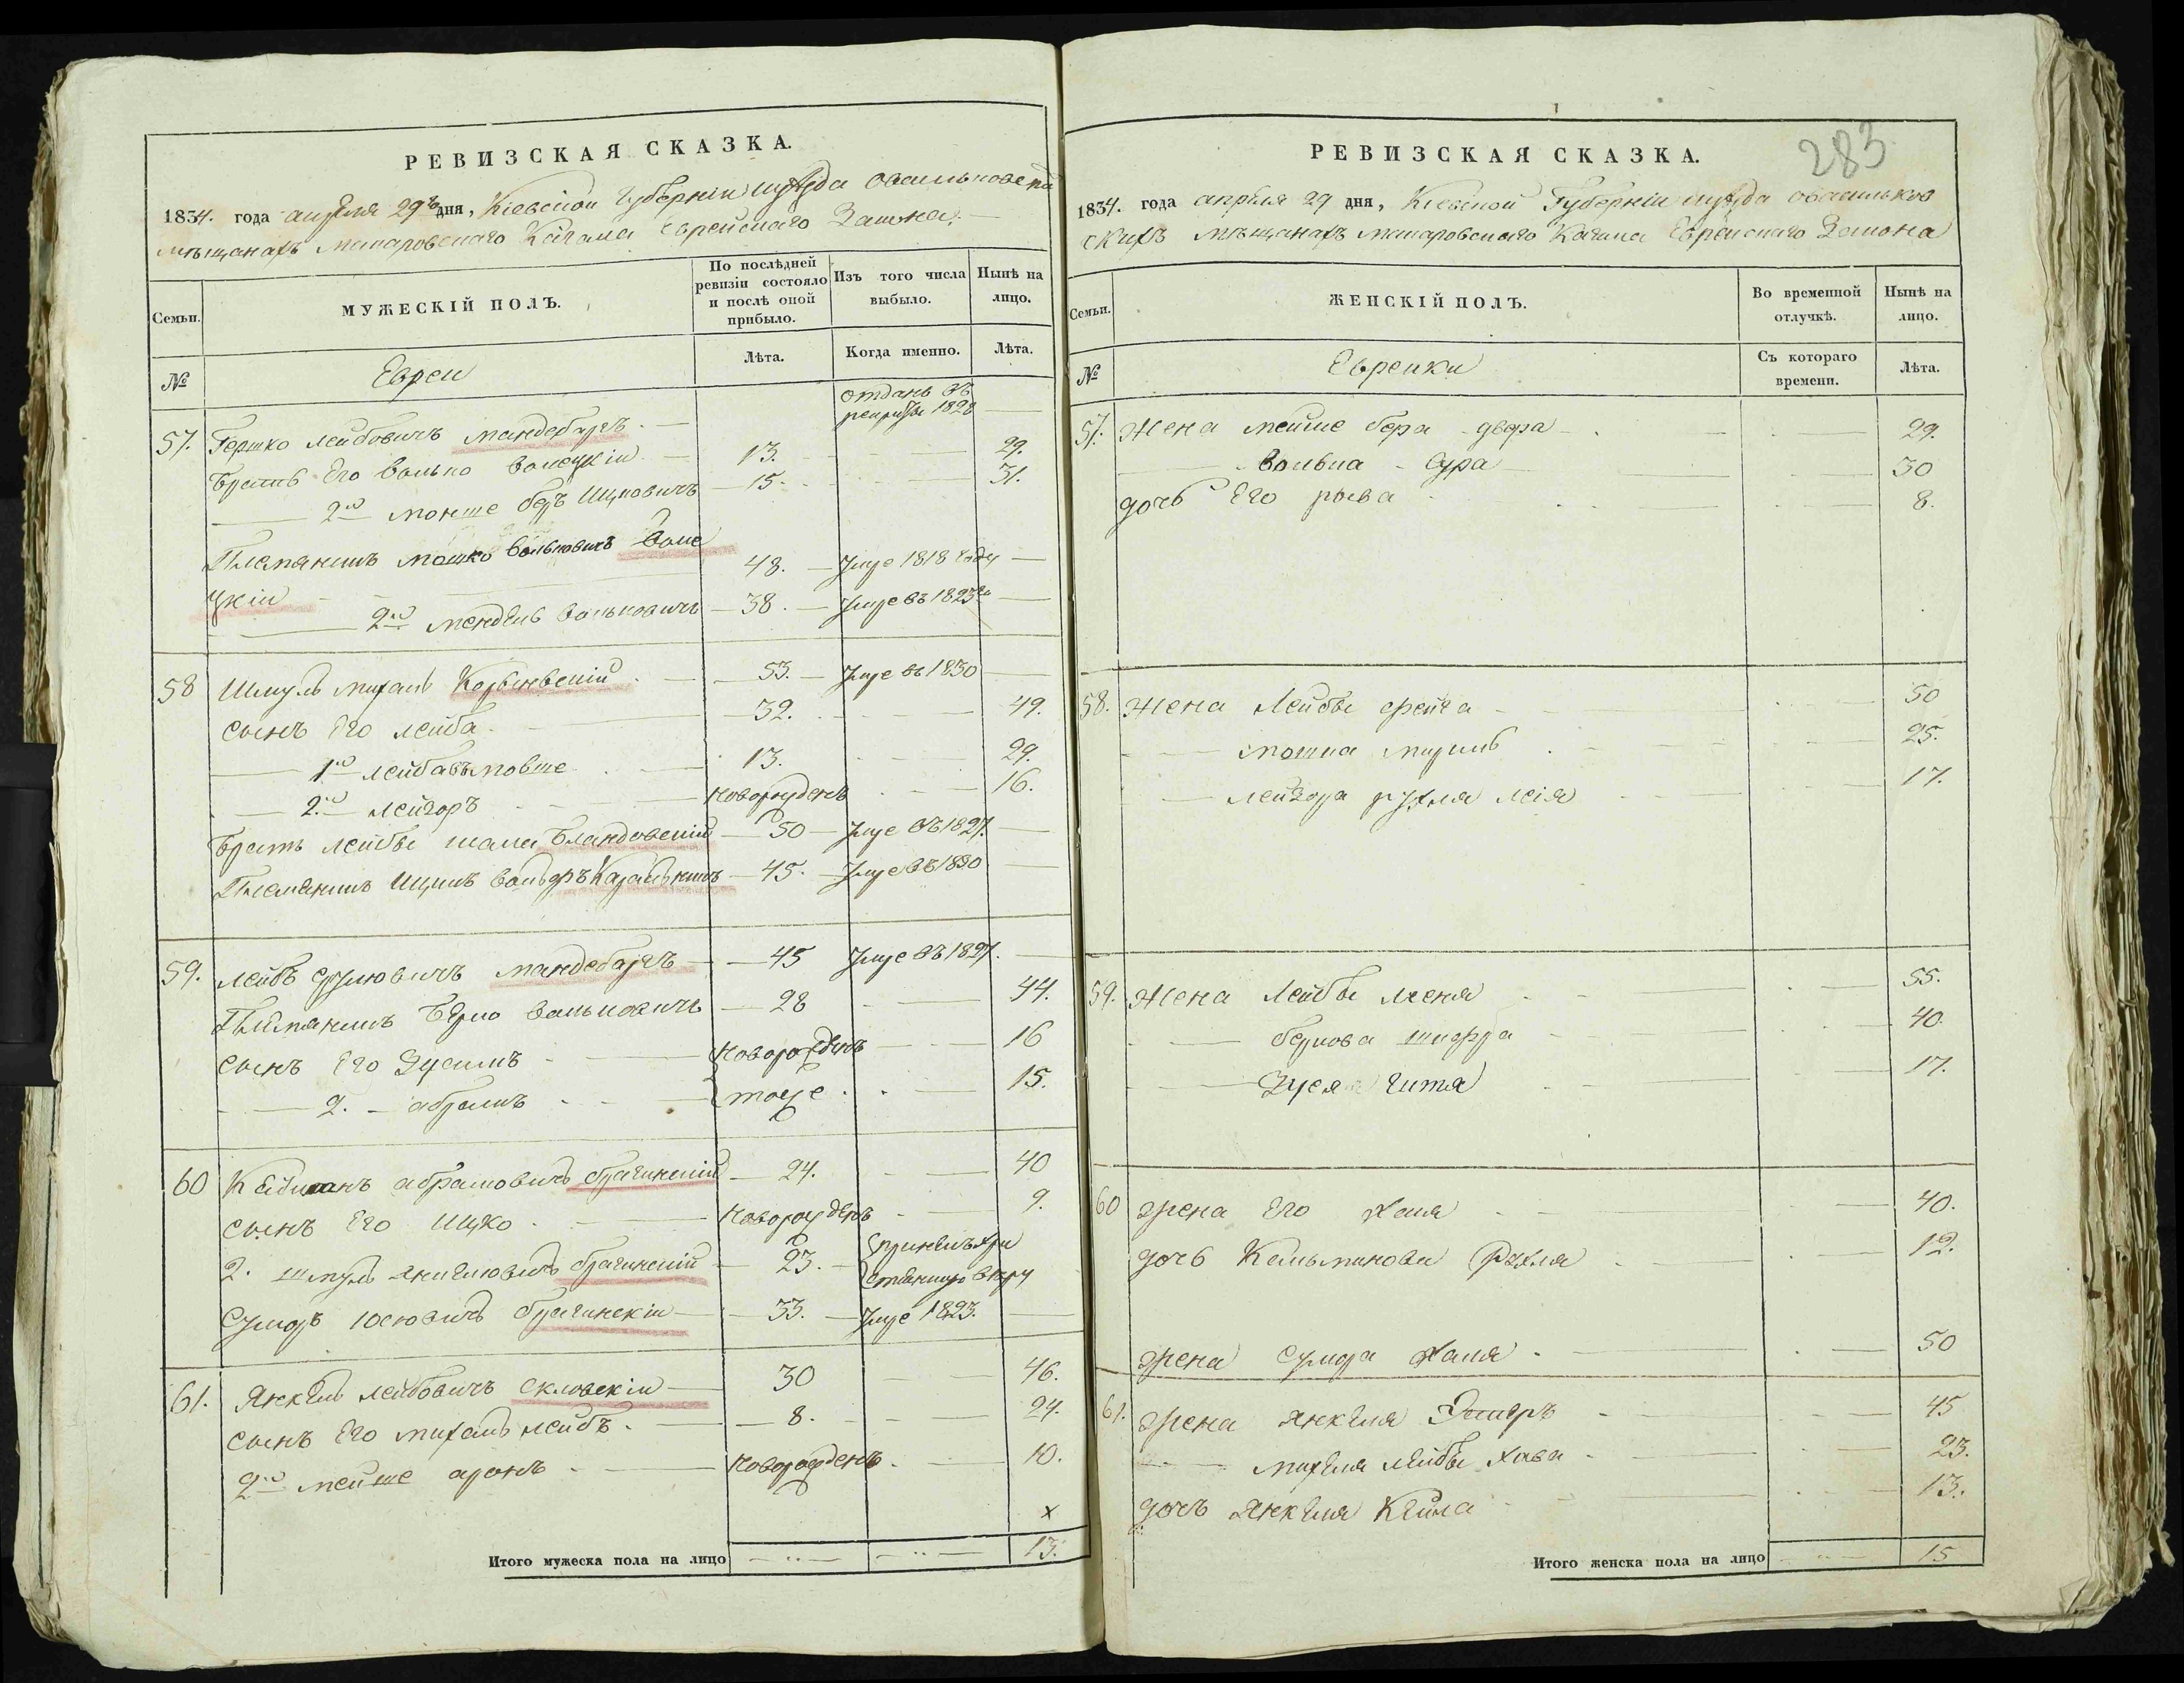 РЕВИЗСКАЯ СКАЗКА.
1834. года апреля 29ъ дня, Кіевской Губерніи уезда овасильковски
мѣщанахъ макаровскаго Кагала Еврейскаго Закона.
Семьи.
МУЖЕСКІЙ ПОЛЪ.
По послѣдней ревизіи состояло и послѣ оной прибыло.
Изъ того числа выбыло.
Нынѣ на лицо.
№
Евреи
Лѣта.
Когда именно.
Лѣта.
57. Гершко лейбовичъ мандебурхъ отданъ въ рекруты 1828
Братъ Его Волько 13. 29.
2й Берѣ Ицковичъ 15. 31.
Племянникъ мошко Вольковичъ
цкій 48. Умре 1818 году
2й мендель Вольковичъ 38. Умре въ 1823го
58 Шмуль михель 53. Умре въ 1830
сынъ Его лейба 32. 49.
1й мовше 13. 29.
2й лейзоръ новорожденъ 16.
Братъ лейбы 50 Умре въ 1827.
Племянникъ Ицикъ 45. Умре въ 1830
59. лейбъ сруловичъ 45 Умре въ 1827.
Племянникъ Берко Вольковичъ 28 44.
сынъ Его Зусимъ новорожденъ 16
2. абрамъ тоже 15.
60 Кельманъ абрамовичъ брагинскій 24. 40
сынъ Его Ицко новорожденъ 9.
2. шмуль янкелювичъ брагинскій 23. принялъ хри
стіянскую веру
Сумеръ Юсювичъ брагинскій 33. Умре 1823.
61. Янкель лейбовичъ скловскій 30 46.
сынъ Его михель лейбъ. 8. 24.
2й мейше аронъ новорожденъ 10.
х
Итого мужеска пола на лицо 13.
283
РЕВИЗСКАЯ СКАЗКА.
1834. года апреля 29 дня, Кіевской Губерніи уезда овасильков
скихъ мѣщанахъ макаровскаго Кагала Еврейскаго Закона
Семьи.
ЖЕНСКІЙ ПОЛЪ.
Во временной отлучкѣ.
Нынѣ на лицо.
№
Еврейки
Съ котораго времени.
Лѣта.
57. Жена мейше бера двера 29.
Волька Сура 30
дочь Его рыва 8.
58. Жена Лейбы фейга 50
мошка 25.
лейзора рухля лея 17.
59. Жена Лейбы 55.
беркова шифра 40.
Зуся гитя 17.
60 жена Его Хая 40.
дочь Кельманова Рухля 12.
жена сумера Хая 50
61. жена янкеля Эстеръ 45
михеля лейбы хава 23.
дочь янкеля Кейла 13.
Итого женска пола на лицо 15